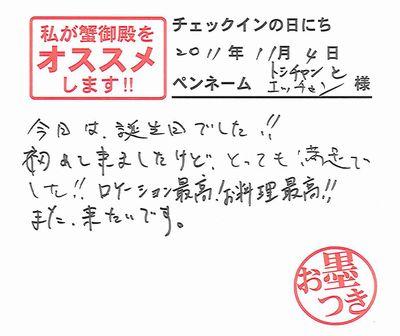 私が蟹御殿を
オススメ
します!!
チェックインの日にち
2011年 11月 4日
トシチャンと
ペンネーム エッチャン 様
今日は、誕生日でした!!
初めて来ましたけど、とっても満足で
した!! ロケーション最高!お料理最高!!
また、来たいです。
お墨つき